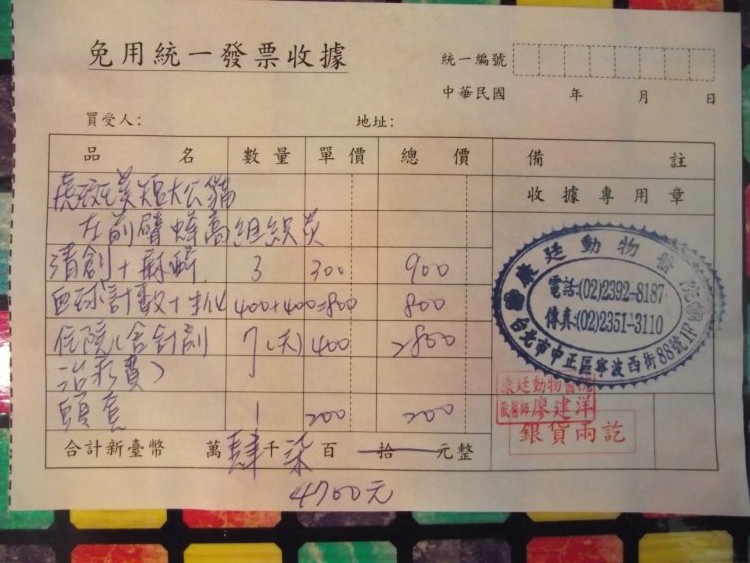 免用統一發票收據
統一編號
中華民國 年 月 日
買受人: 地址:
品 名 數量 單 價 總 價 備 註
收據專用章
虎斑美短大公貓
左前臂蜂窩組織炎
清創+麻醉 3 300 900
血球計數+生化 400+400=800 800
住院(含針劑 7(天) 400 2800
治療費)
頭套 1 200 200
合計新臺幣 萬肆千柒百拾元整
4700元
康廷動物醫院
電話:(02)2392-8187
傳真:(02)2351-3110
台北市中正區寧波西街88號1F
康廷動物醫院
獸醫師 廖建洋
銀貨兩訖